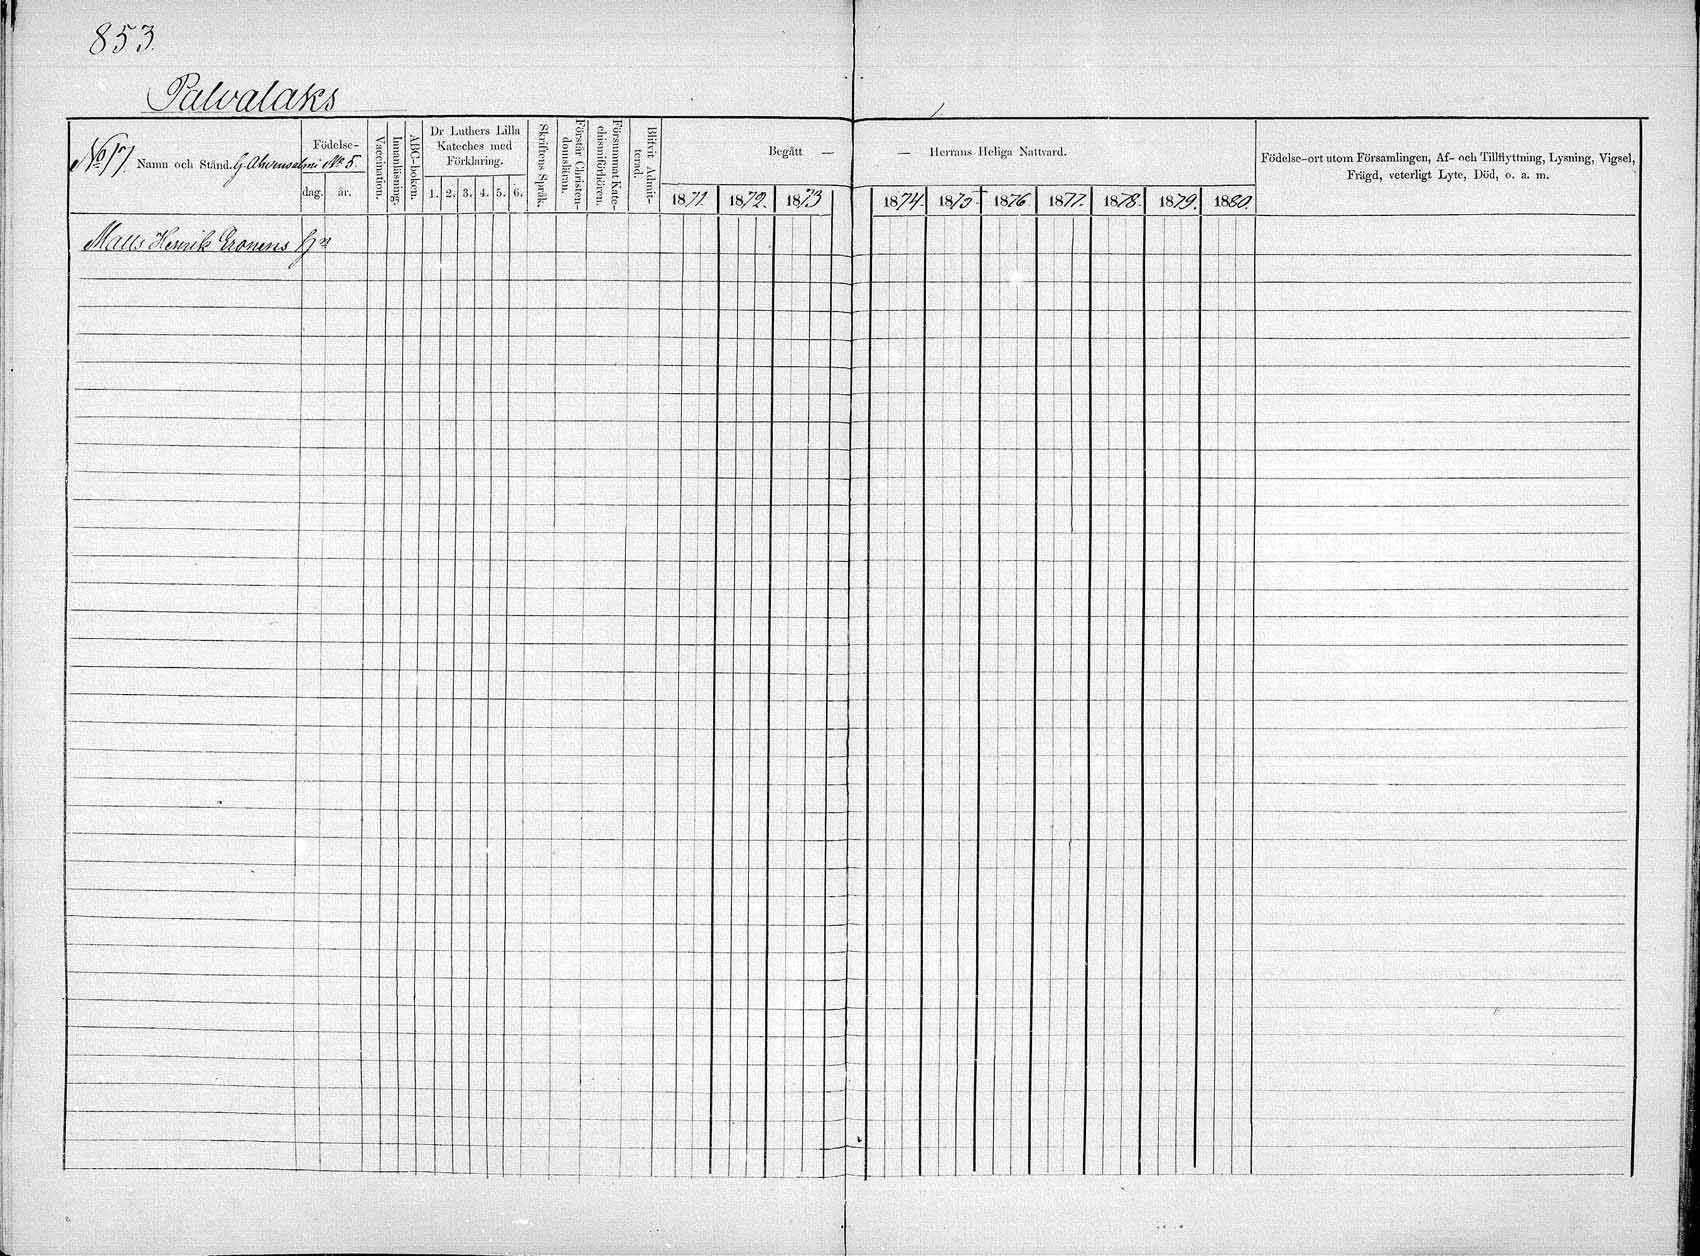 853.
Palvalaks
No 17. Namn och Stånd. G. Ahvensalmi No 5
Födelse-
dag. år.
Vaccination.
Innanläsning.
ABC-boken.
Dr Luthers Lilla
Kateches med
Förklaring.
1. 2. 3. 4. 5. 6.
Skriftens Språk.
Förstår Christen-
domsläran.
Försummat Kate-
chismiförhören.
Blifvit Admit-
terad.
Begått — — Herrans Heliga Nattvard.
1871. 1872. 1873 1874. 1875. 1876 1877. 1878. 1879. 1880.
Födelse-ort utom Församlingen, Af- och Tillflyttning, Lysning, Vigsel,
Frägd, veterligt Lyte, Död, o. a. m.
Matts Henrik Eronens